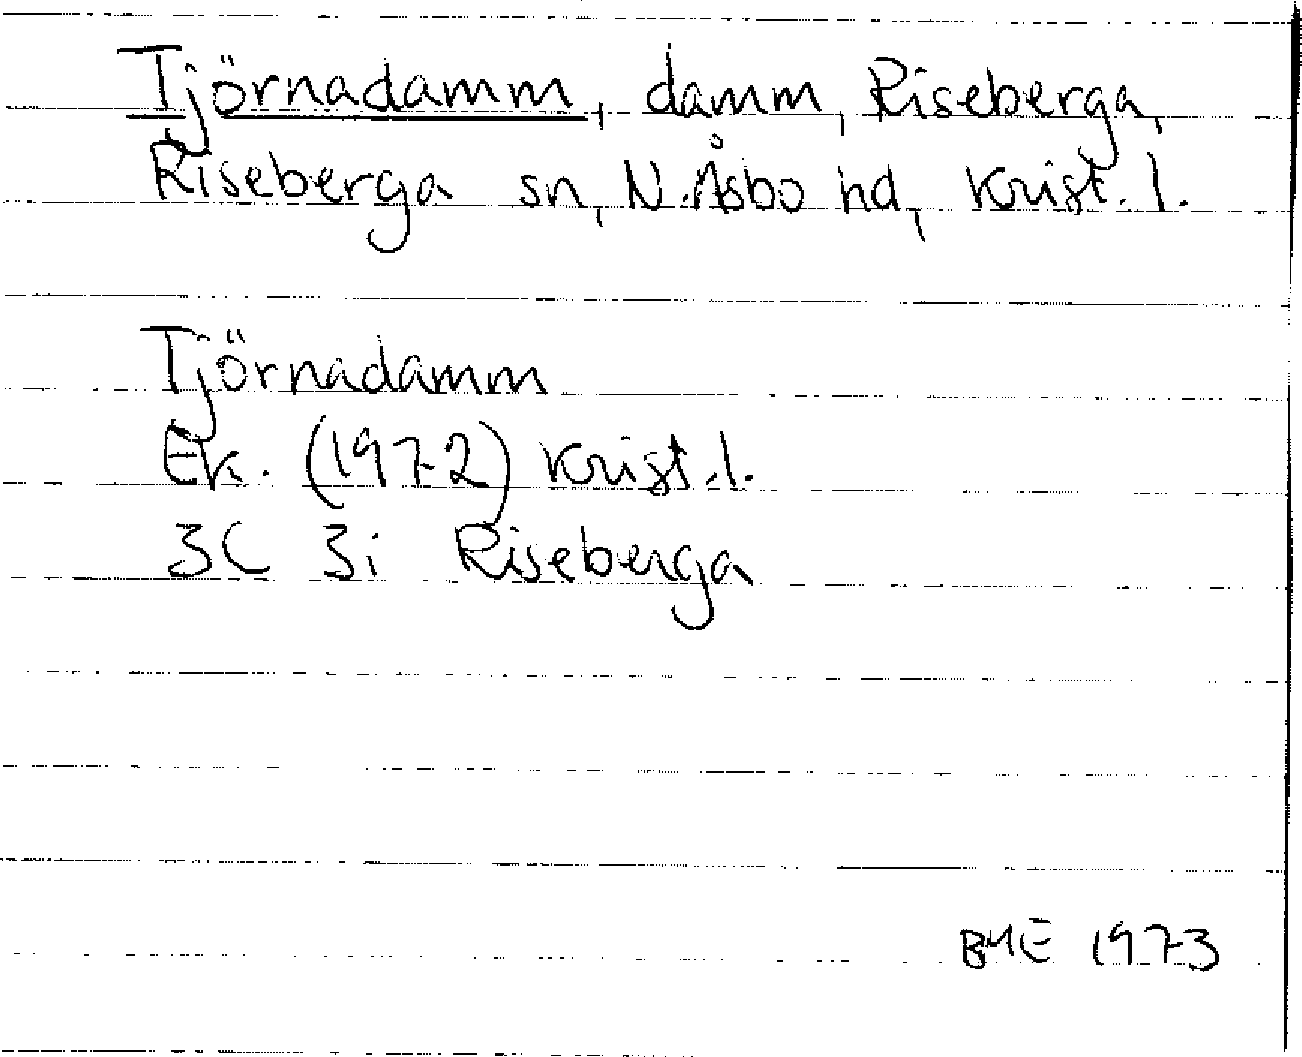 Tjörnadamm, damm, Riseberga,
Riseberga sn, N. Åsbo hd, Krist. l.
Tjörnadamm
Ek. (1972) Krist. l.
3C 3i Riseberga
BME 1973